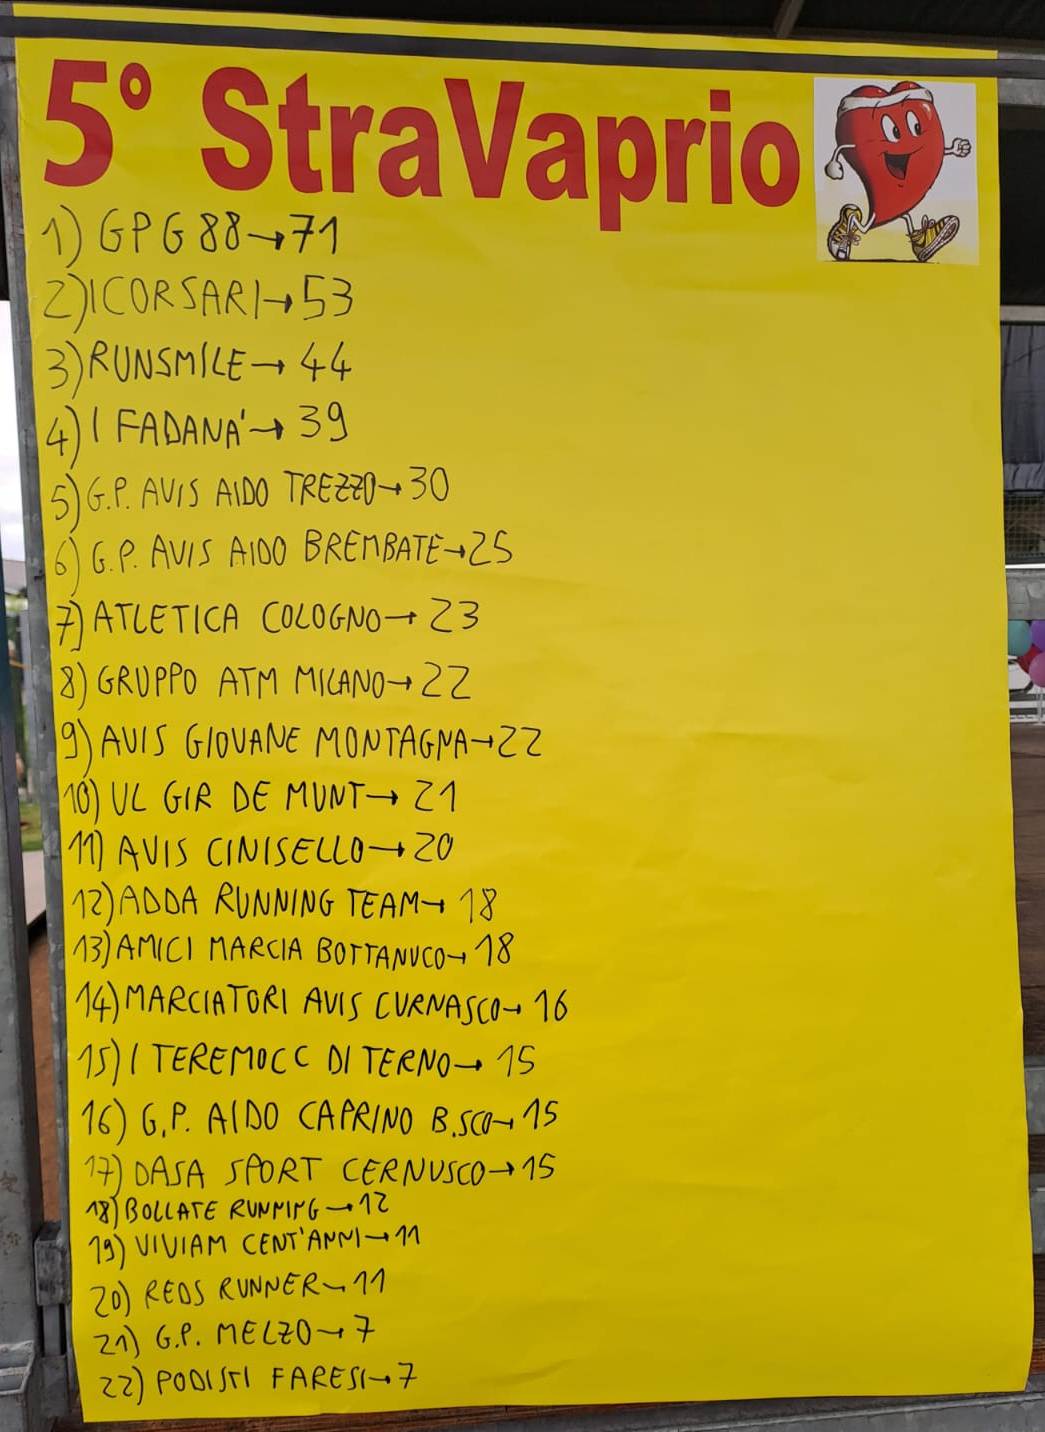 5° StraVaprio
1) GPG 88→71
2) I CORSARI→53
3) RUNSMILE→44
4) I FADANA'→39
5) G.P. AVIS AIDO TREZZO→30
6) G.P. AVIS AIDO BREMBATE→25
7) ATLETICA COLOGNO→23
8) GRUPPO ATM MILANO→22
9) AVIS GIOVANE MONTAGNA→22
10) UL GIR DE MUNT→21
11) AVIS CINISELLO→20
12) ADDA RUNNING TEAM→18
13) AMICI MARCIA BOTTANUCO→18
14) MARCIATORI AVIS CURNASCO→16
15) I TEREMOCC DI TERNO→15
16) G.P. AIDO CAPRINO B.SCO→15
17) DASA SPORT CERNUSCO→15
18) BOLLATE RUNNING→12
19) VIVIAM CENT'ANNI→11
20) REDS RUNNER→11
21) G.P. MELZO→7
22) PODISTI FARESI→7